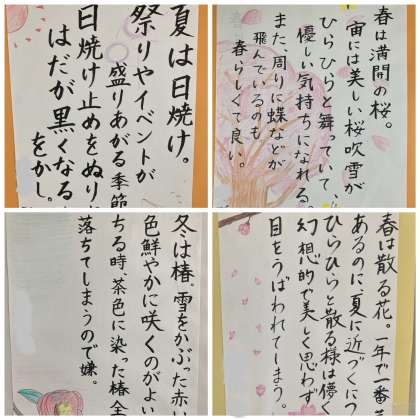 夏は日焼け。
祭りやイベントが
盛りあがる季節
日焼け止めをぬり
はだが黒くなる
をかし。
春は満開の桜。
宙には美しい桜吹雪が
ひらひらと舞っていて
優しい気持ちになれる。
また、周りに蝶などが
飛んでいるのも
春らしくて良い。
冬は椿。雪をかぶった赤い
色鮮やかに咲くのがよい
ちる時、茶色に染った椿全
落ちてしまうので嫌。
春は散る花。一年で一番
あるのに、夏に近づくにつ
ひらひらと散る様は儚く
幻想的で美しく思わず
目をうばわれてしまう。